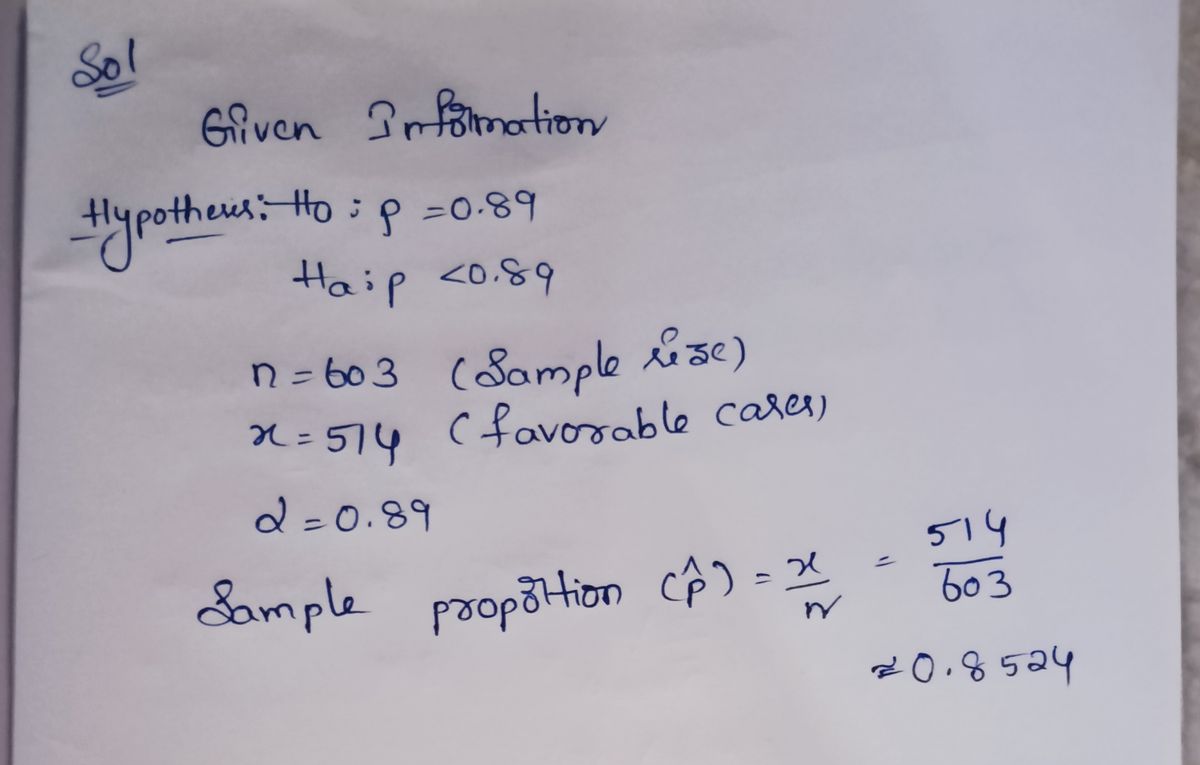 Sol
Given Information
Hypothesis: Ho : p = 0.89
Ha : p < 0.89
n = 603 (Sample size)
x = 514 (favorable cases)
α = 0.89
Sample proportion (p̂) = x/n = 514/603
≈ 0.8524